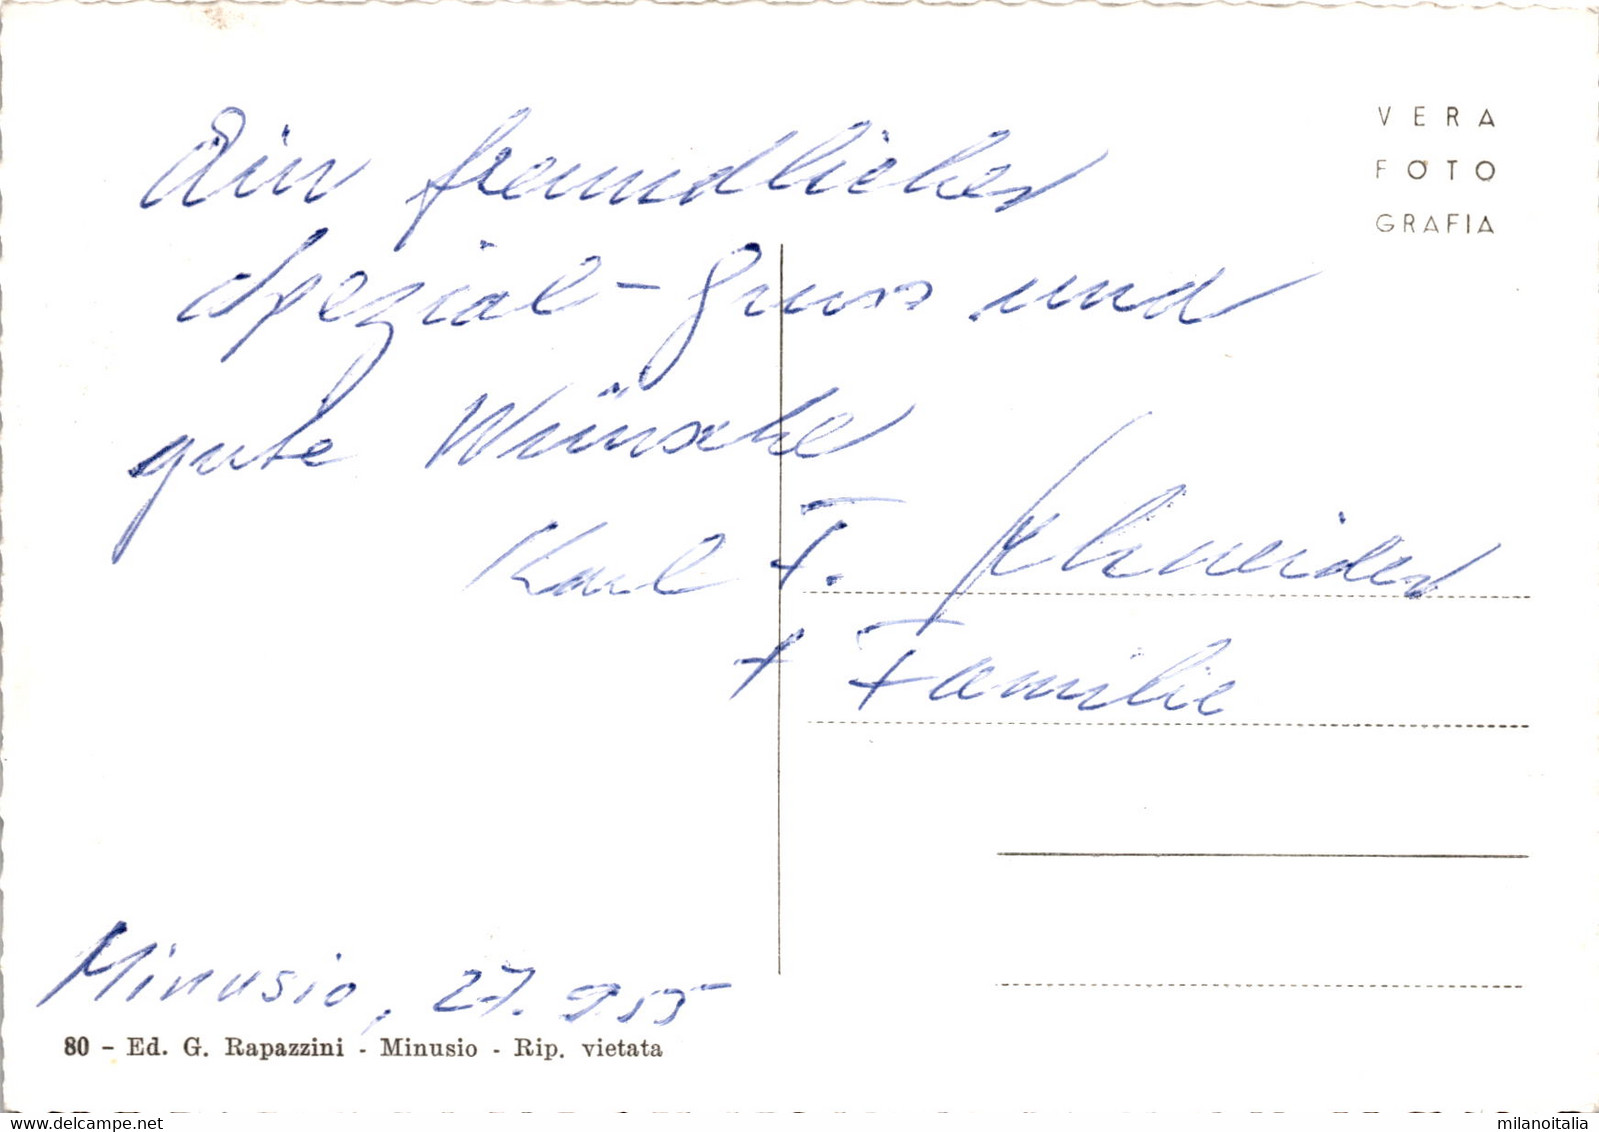 Ein freundlicher
Spezial-Gruss und
gute Wünsche
Karl F. Schneider
+ Familie
Minusio, 27.9.55
VERA
FOTO
GRAFIA
80 - Ed. G. Rapazzini - Minusio - Rip. vietata
milanoitalia